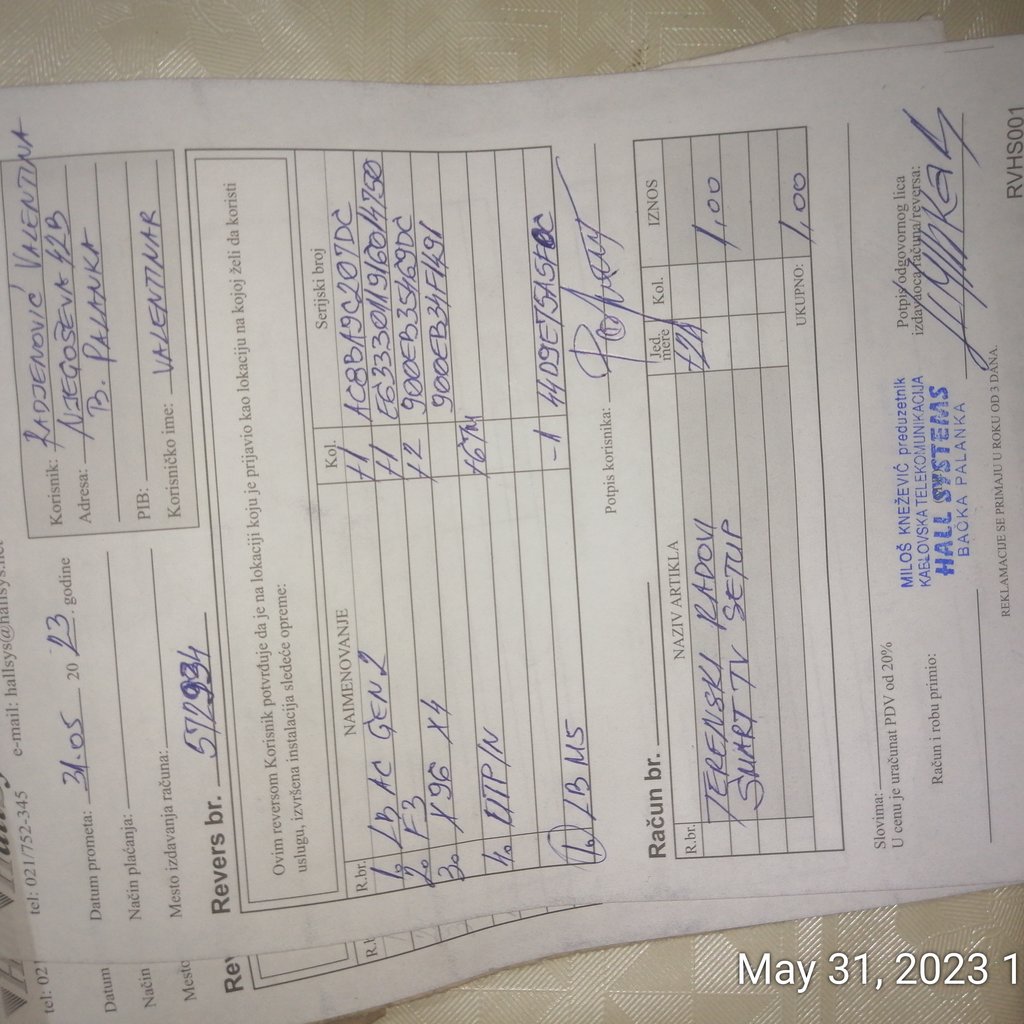 tel: 021/752-345
e-mail: hallsys@hallsys.net
Datum prometa: 31.05 20 23. godine
Način plaćanja:
Mesto izdavanja računa:
Korisnik: RADJENOVIĆ VALENTINA
Adresa: NJEGOŠEVA 42B
B. PALANKA
PIB:
Korisničko ime: VALENTINAR
Revers br.
Ovim reversom Korisnik potvrđuje da je na lokaciji koju je prijavio kao lokaciju na kojoj želi da koristi
uslugu, izvršena instalacija sledeće opreme:
R.br. NAIMENOVANJE Kol. Serijski broj
1. LB AC GEN 2 +1
2. F3 +1
3. X96 X4 +2 900EB35469DC
900EB34F1491
4. UTP/N +67M
1. LB M5 -1
Potpis korisnika:
Račun br.
R.br. NAZIV ARTIKLA Jed. mere Kol. IZNOS
TERENSKI RADOVI 1,00
SMART TV SETUP
UKUPNO: 1,00
Slovima:
U cenu je uračunat PDV od 20%
Račun i robu primio:
MILOŠ KNEŽEVIĆ preduzetnik
KABLOVSKA TELEKOMUNIKACIJA
HALL SYSTEMS
BAČKA PALANKA
Potpis odgovornog lica
izdavaoca računa/reversa:
REKLAMACIJE SE PRIMAJU U ROKU OD 3 DANA.
RVHS001
tel: 021
Datum
Način
Mesto
Rev
May 31, 2023 1